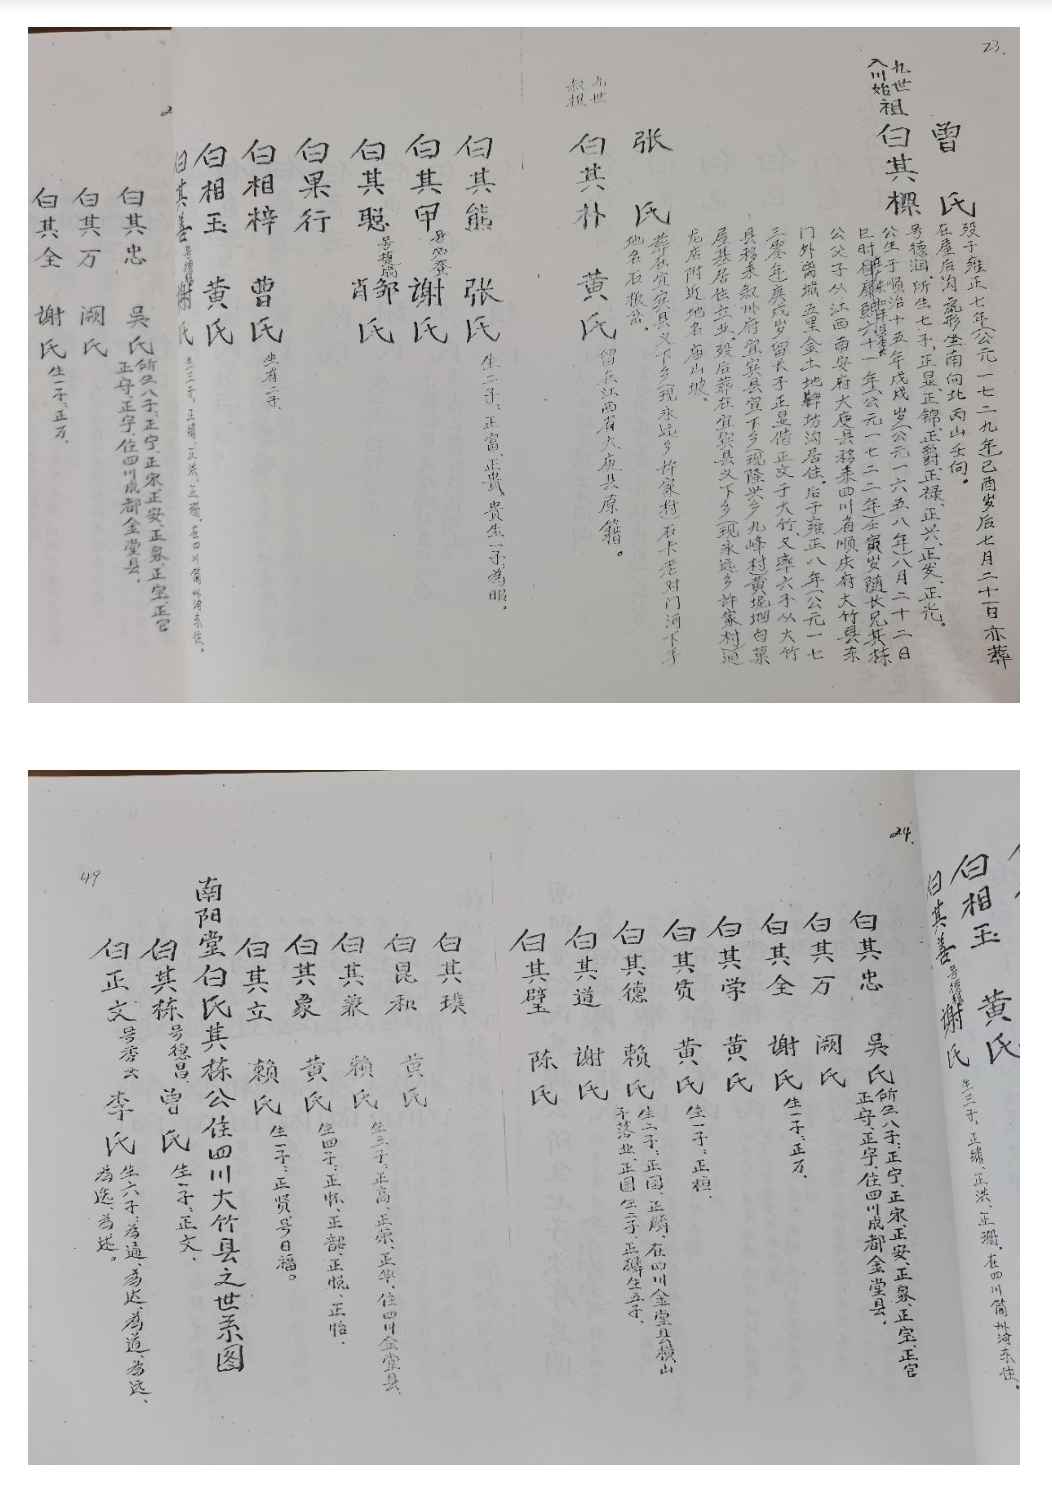 23.
九世
入川始
祖
白其檏
曾氏
号德润所生七子,正显、正锦、正爵、正禄、正兴、正发、正光。
公生于顺治十五年戊戌岁(公元一六五八年)八月二十二日
巳时
六十一年(公元一七二二年)壬寅岁随长兄其栋
公父子从江西南安府大庾县移来四川省顺庆府大竹县东
门外离城五里金土地牌坊沟居住,后于雍正八年(公元一七
三零年)庚戌岁留长子正显偕正文于大竹,又率六子从大竹
县移来叙州府宜宾县宜下乡(现隆兴乡九峰村)黄坭坳白菓
屋基居住立业,殁后葬在宜宾县义下乡(现永远乡许家村)迴
龙店附近地名庙山坡。
殁于雍正七年(公元一七二九年)己酉岁后七月二十一日亦葬
在屋后沟 形坐南向北丙山壬向。
张氏
葬在宜宾县义下乡(现永远乡许家村)石卡老对门河下手
地名石板岔。
九世
叔祖
白其朴 黄氏 留在江西省大庾县原籍。
白其熊 张氏 生二子:正富、正贵,贵生一子,为明。
白其甲 谢氏
白其聪 邹肖氏
白果行
白相梓 曹氏 生有二子。
白相玉 黄氏
白其善 谢氏 生三子,正 、正洪、正珊、在四川简州 住。
白其忠 吴氏 所生八子:正宁、正宋、正安、正泉、正宝、正官
正守、正字、住四川成都金堂县。
白其万 阙氏
白其全 谢氏 生一子,正万。
24.
白相玉 黄氏
白其善 谢氏 生三子,正 、正洪、正珊、在四川简州 住。
白其忠 吴氏 所生八子:正宁、正宋、正安、正泉、正宝、正官
正守、正字、住四川成都金堂县。
白其万 阙氏
白其全 谢氏 生一子,正万。
白其学 黄氏
白其贤 黄氏 生一子:正桓。
白其德 赖氏 生二子:正国、正麟、在四川金堂县横山
子落业,正国生二子,正麟生五子。
白其道 谢氏
白其璧 陈氏
白其璞
白昆和 黄氏
白其兼 赖氏 生三子:正高、正荣、正华,住四川金堂县。
白其象 黄氏 生四子:正怀、正韶、正悦、正怡。
白其立 赖氏 生一子:正贤号日福。
南阳堂白氏其栋公住四川大竹县之世系图
白其栋 号德昌、曾氏 生一子:正文。
白正文 号秀云 李氏 生六子:为通、为达、为道、为远、
为逸、为廷。
49